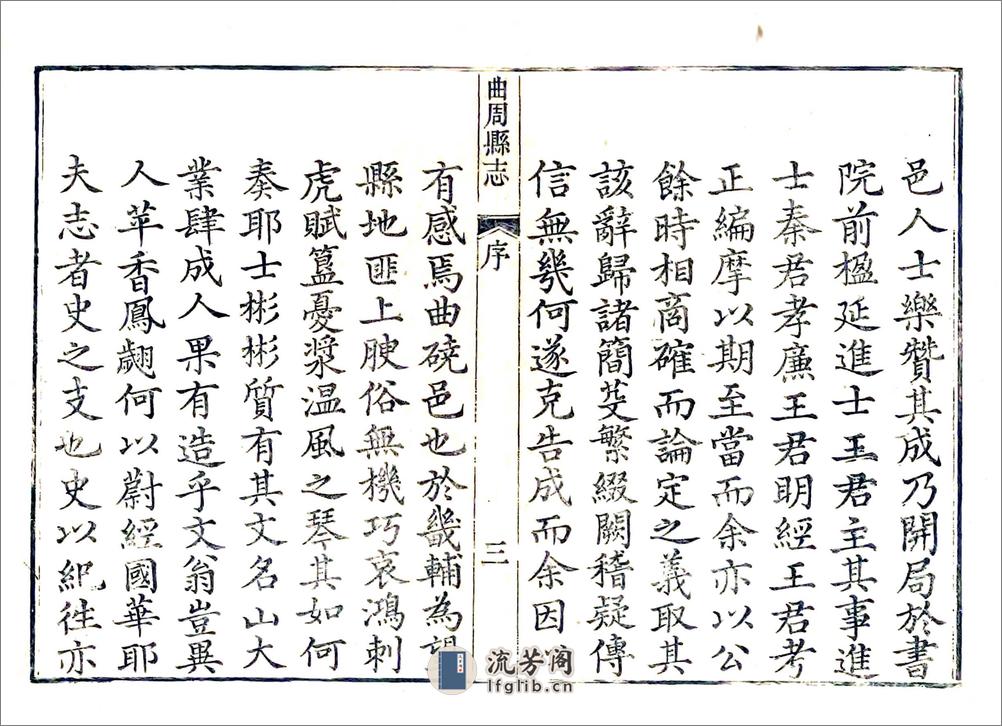 邑人士樂贊其成乃開局於書
院前楹延進士王君主其事進
士秦君孝廉王君明經王君考
正編摩以期至當而余亦以公
餘時相商確而論定之義取其
該辭歸諸簡芟繁綴闕稽疑傳
信無幾何遂克告成而余因
曲周縣志
序
三
有感焉曲磽邑也於畿輔為望
縣地匪上腴俗無機巧哀鴻刺
虎賦簋憂漿温風之琴其如何
奏耶士彬彬質有其文名山大
業肆成人果有造乎文翁豈異
人苹香鳳翽何以蔚經國華耶
夫志者史之支也史以紀往亦
流芳阁
lfglib.cn